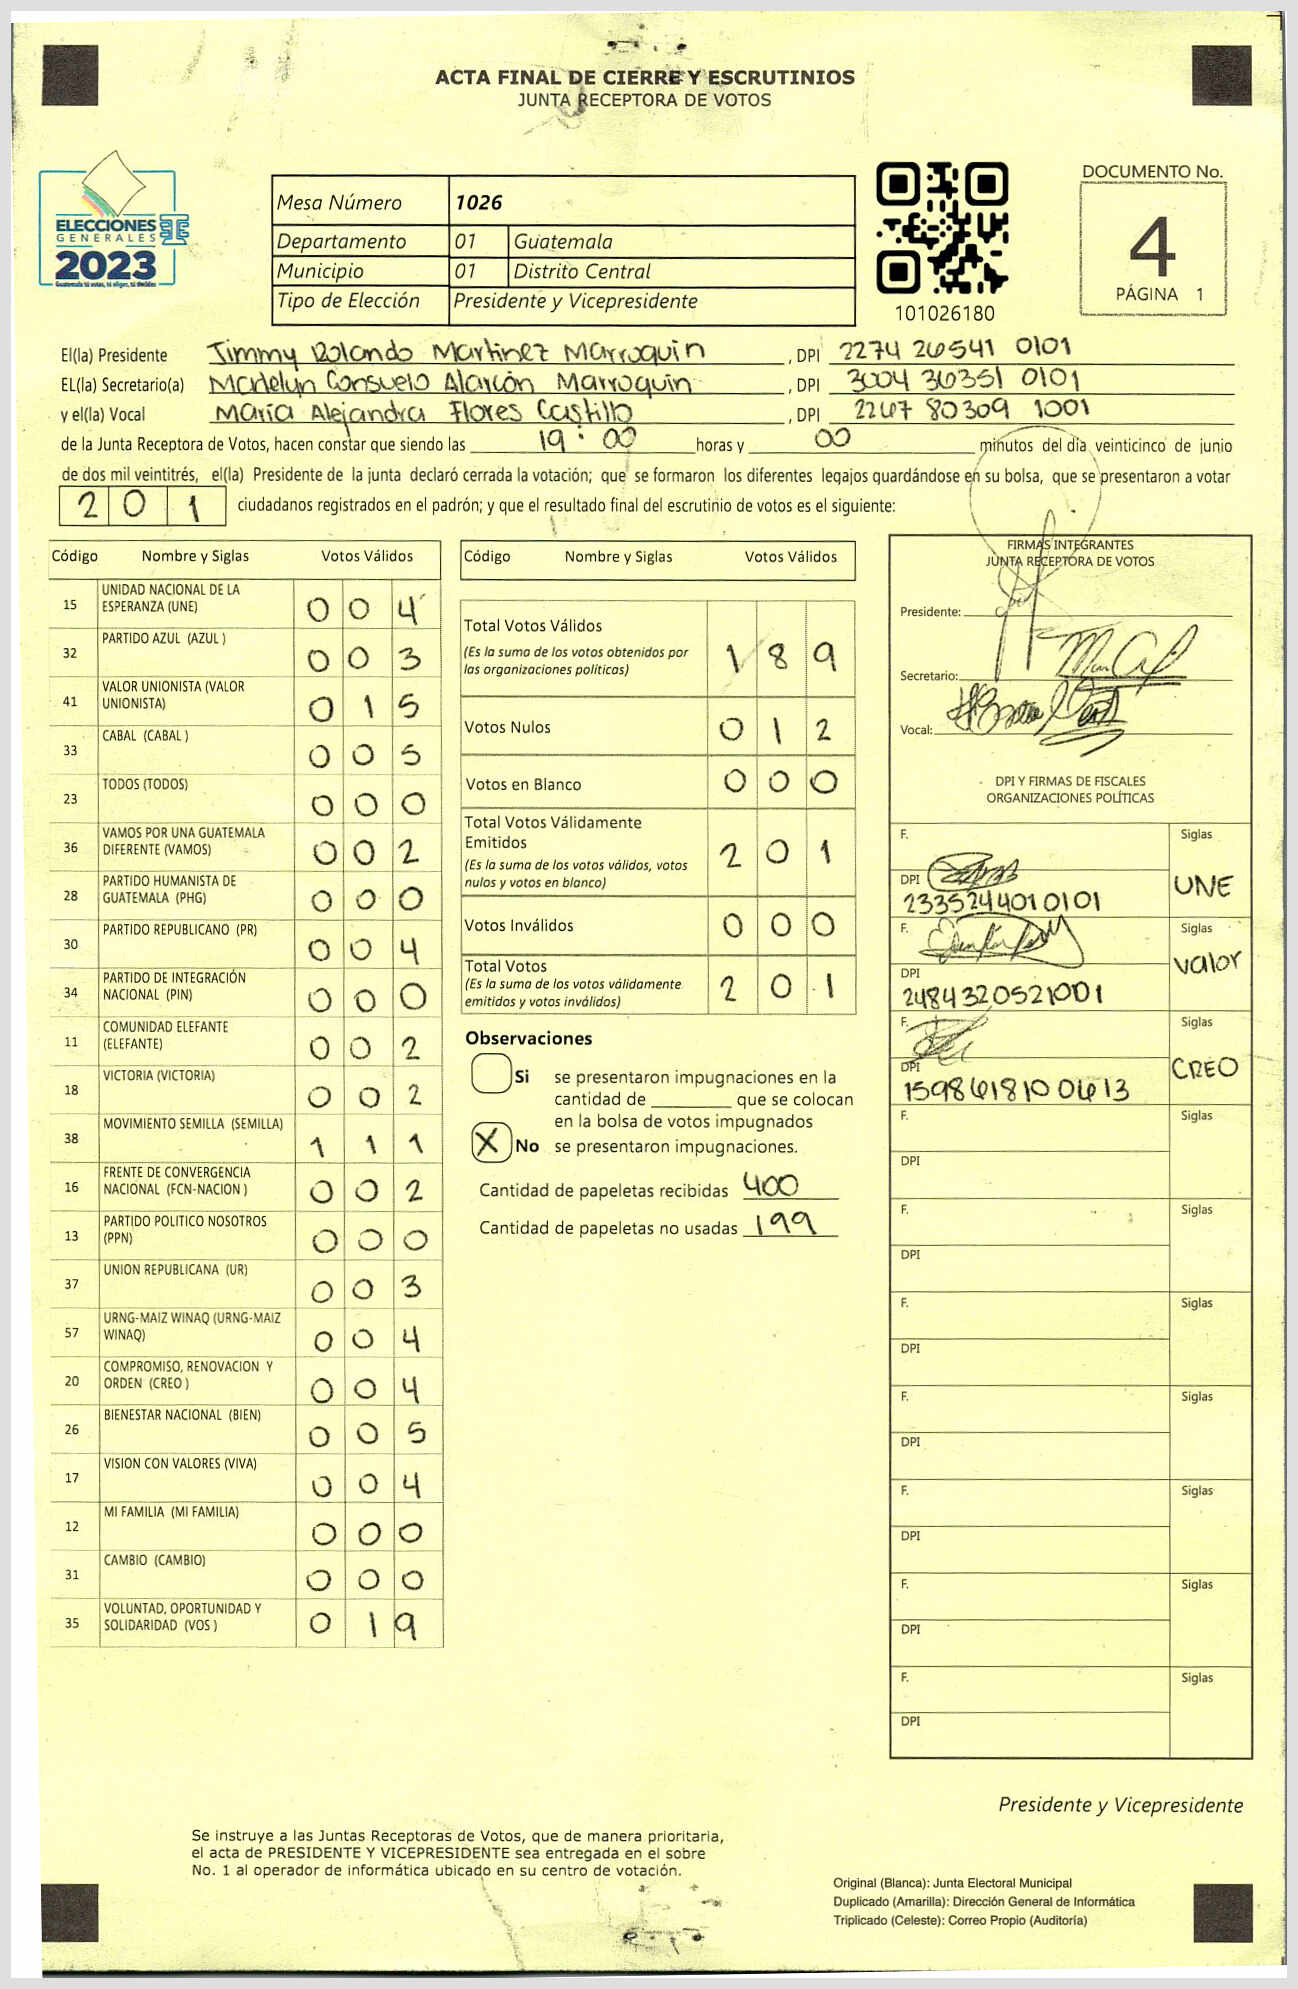 ACTA FINAL DE CIERRE Y ESCRUTINIOS
JUNTA RECEPTORA DE VOTOS
ELECCIONES
GENERALES
2023
Guatemala tú votas, tú eliges, tú decides
Mesa Número 1026
Departamento 01 Guatemala
Municipio 01 Distrito Central
Tipo de Elección Presidente y Vicepresidente
101026180
DOCUMENTO No.
4
PÁGINA 1
El(la) Presidente Jimmy Rolando Martinez Marroquin , DPI 2274 26541 0101
EL(la) Secretario(a) Madelyn Consuelo Alarcón Marroquin , DPI 3004 36351 0101
y el(la) Vocal María Alejandra Flores Castillo , DPI 2267 80309 1001
de la Junta Receptora de Votos, hacen constar que siendo las 19:00 horas y 00 minutos del día veinticinco de junio
de dos mil veintitrés, el(la) Presidente de la junta declaró cerrada la votación; que se formaron los diferentes legajos guardándose en su bolsa, que se presentaron a votar
2 0 1 ciudadanos registrados en el padrón; y que el resultado final del escrutinio de votos es el siguiente:
Código Nombre y Siglas Votos Válidos
15 UNIDAD NACIONAL DE LA
ESPERANZA (UNE) 0 0 4
32 PARTIDO AZUL (AZUL ) 0 0 3
41 VALOR UNIONISTA (VALOR
UNIONISTA) 0 1 5
33 CABAL (CABAL ) 0 0 5
23 TODOS (TODOS) 0 0 0
36 VAMOS POR UNA GUATEMALA
DIFERENTE (VAMOS) 0 0 2
28 PARTIDO HUMANISTA DE
GUATEMALA (PHG) 0 0 0
30 PARTIDO REPUBLICANO (PR) 0 0 4
34 PARTIDO DE INTEGRACIÓN
NACIONAL (PIN) 0 0 0
11 COMUNIDAD ELEFANTE
(ELEFANTE) 0 0 2
18 VICTORIA (VICTORIA) 0 0 2
38 MOVIMIENTO SEMILLA (SEMILLA) 1 1 1
16 FRENTE DE CONVERGENCIA
NACIONAL (FCN-NACION ) 0 0 2
13 PARTIDO POLITICO NOSOTROS
(PPN) 0 0 0
37 UNION REPUBLICANA (UR) 0 0 3
57 URNG-MAIZ WINAQ (URNG-MAIZ
WINAQ) 0 0 4
20 COMPROMISO, RENOVACION Y
ORDEN (CREO ) 0 0 4
26 BIENESTAR NACIONAL (BIEN) 0 0 5
17 VISION CON VALORES (VIVA) 0 0 4
12 MI FAMILIA (MI FAMILIA) 0 0 0
31 CAMBIO (CAMBIO) 0 0 0
35 VOLUNTAD, OPORTUNIDAD Y
SOLIDARIDAD (VOS ) 0 1 9
Código Nombre y Siglas Votos Válidos
Total Votos Válidos
(Es la suma de los votos obtenidos por
las organizaciones politicas) 1 8 9
Votos Nulos 0 1 2
Votos en Blanco 0 0 0
Total Votos Válidamente
Emitidos
(Es la suma de los votos válidos, votos
nulos y votos en blanco) 2 0 1
Votos Inválidos 0 0 0
Total Votos
(Es la suma de los votos válidamente
emitidos y votos inválidos) 2 0 1
Observaciones
Si se presentaron impugnaciones en la
cantidad de ________ que se colocan
en la bolsa de votos impugnados
X No se presentaron impugnaciones.
Cantidad de papeletas recibidas 400
Cantidad de papeletas no usadas 199
FIRMAS INTEGRANTES
JUNTA RECEPTORA DE VOTOS
Presidente:
Secretario:
Vocal:
DPI Y FIRMAS DE FISCALES
ORGANIZACIONES POLÍTICAS
F. Siglas
DPI UNE
2335244010101
F. Siglas
DPI Valor
2484320521001
F. Siglas
DPI CREO
1598618100613
F. Siglas
DPI
F. Siglas
DPI
F. Siglas
DPI
F. Siglas
DPI
F. Siglas
DPI
F. Siglas
DPI
F. Siglas
DPI
Presidente y Vicepresidente
Se instruye a las Juntas Receptoras de Votos, que de manera prioritaria,
el acta de PRESIDENTE Y VICEPRESIDENTE sea entregada en el sobre
No. 1 al operador de informática ubicado en su centro de votación.
Original (Blanca): Junta Electoral Municipal
Duplicado (Amarilla): Dirección General de Informática
Triplicado (Celeste): Correo Propio (Auditoría)